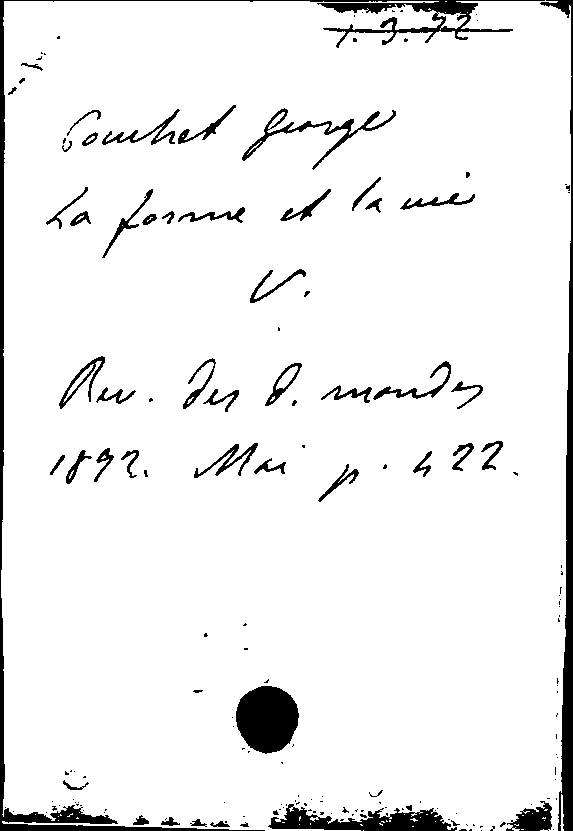 1.3.92
Pouchet George
La forme et la vie
V.
Rev. des d. mondes
1892. Mai p. 422.